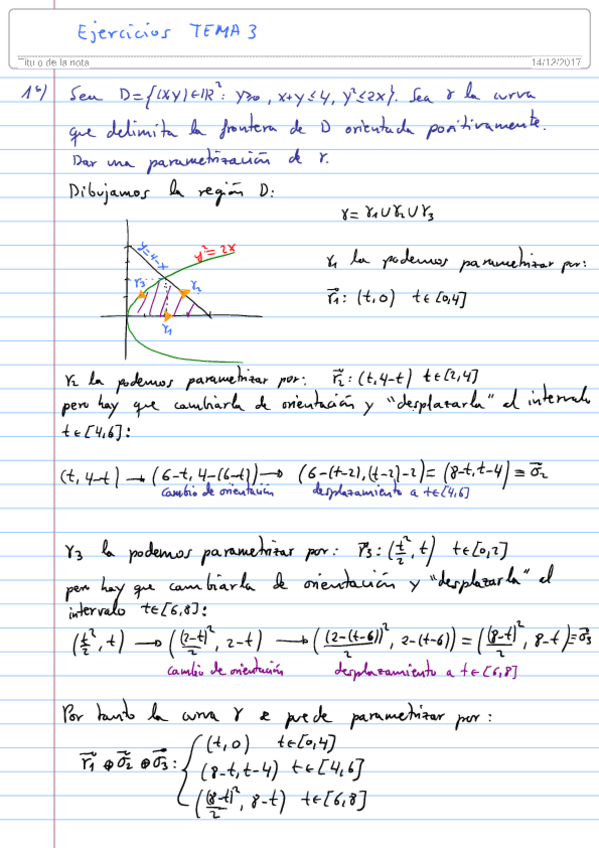 Ejercicios TEMA 3
Título de la nota
14/12/2017
1º) Sea D={(x,y)∈ℝ²: y≥0, x+y≤4, y²≤2x}. Sea γ la curva
que delimita la frontera de D orientada positivamente.
Dar una parametrización de γ.
Dibujamos la región D:
γ = γ1 ∪ γ2 ∪ γ3
y=4-x
y²=2x
γ3
γ2
γ1
γ1 la podemos parametrizar por:
r⃗1: (t,0) t∈[0,4]
γ2 la podemos parametrizar por: r⃗2: (t,4-t) t∈[2,4]
pero hay que cambiarla de orientación y "desplazarla" al intervalo
t∈[4,6]:
(t,4-t) → (6-t, 4-(6-t)) → (6-(t-2), (t-2)-2) = (8-t, t-4) ≡ σ⃗2
cambio de orientación desplazamiento a t∈[4,6]
γ3 la podemos parametrizar por: r⃗3: (t²/2, t) t∈[0,2]
pero hay que cambiarla de orientación y "desplazarla" al
intervalo t∈[6,8]:
(t²/2, t) → ((2-t)²/2, 2-t) → ((2-(t-6))²/2, 2-(t-6)) = ((8-t)²/2, 8-t) ≡ σ⃗3
cambio de orientación desplazamiento a t∈[6,8]
Por tanto la curva γ se puede parametrizar por:
r⃗1 ⊕ σ⃗2 ⊕ σ⃗3: { (t,0) t∈[0,4]
(8-t, t-4) t∈[4,6]
((8-t)²/2, 8-t) t∈[6,8]